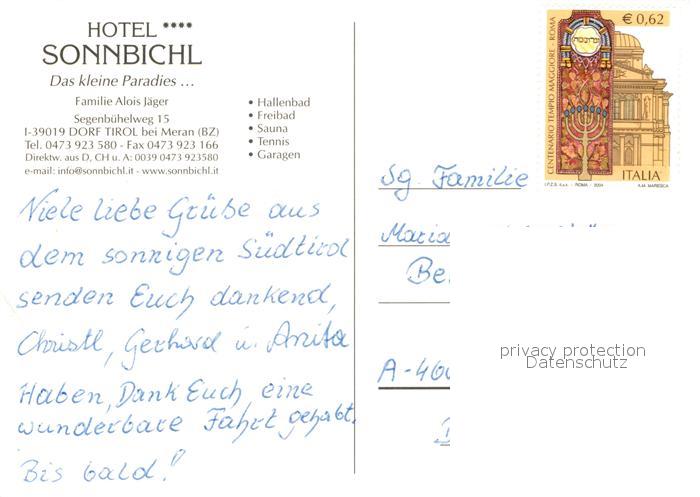 HOTEL ****
SONNBICHL
Das kleine Paradies ...
Familie Alois Jäger
Segenbühelweg 15
I-39019 DORF TIROL bei Meran (BZ)
Tel. 0473 923 580 - Fax 0473 923 166
Direktw. aus D, CH u. A: 0039 0473 923580
e-mail: info@sonnbichl.it - www.sonnbichl.it
• Hallenbad
• Freibad
• Sauna
• Tennis
• Garagen
€ 0,62
CENTENARIO TEMPIO MAGGIORE - ROMA
ITALIA
I.P.Z.S. S.p.A. - ROMA - 2004
A.M. MARESCA
Viele liebe Grüße aus
dem sonnigen Südtirol
senden Euch dankend,
Christl, Gerhard u. Anita
Haben, Dank Euch, eine
wunderbare Fahrt gehabt.
Bis bald!
Sg. Familie
Maria
Be
A-460
privacy protection
Datenschutz